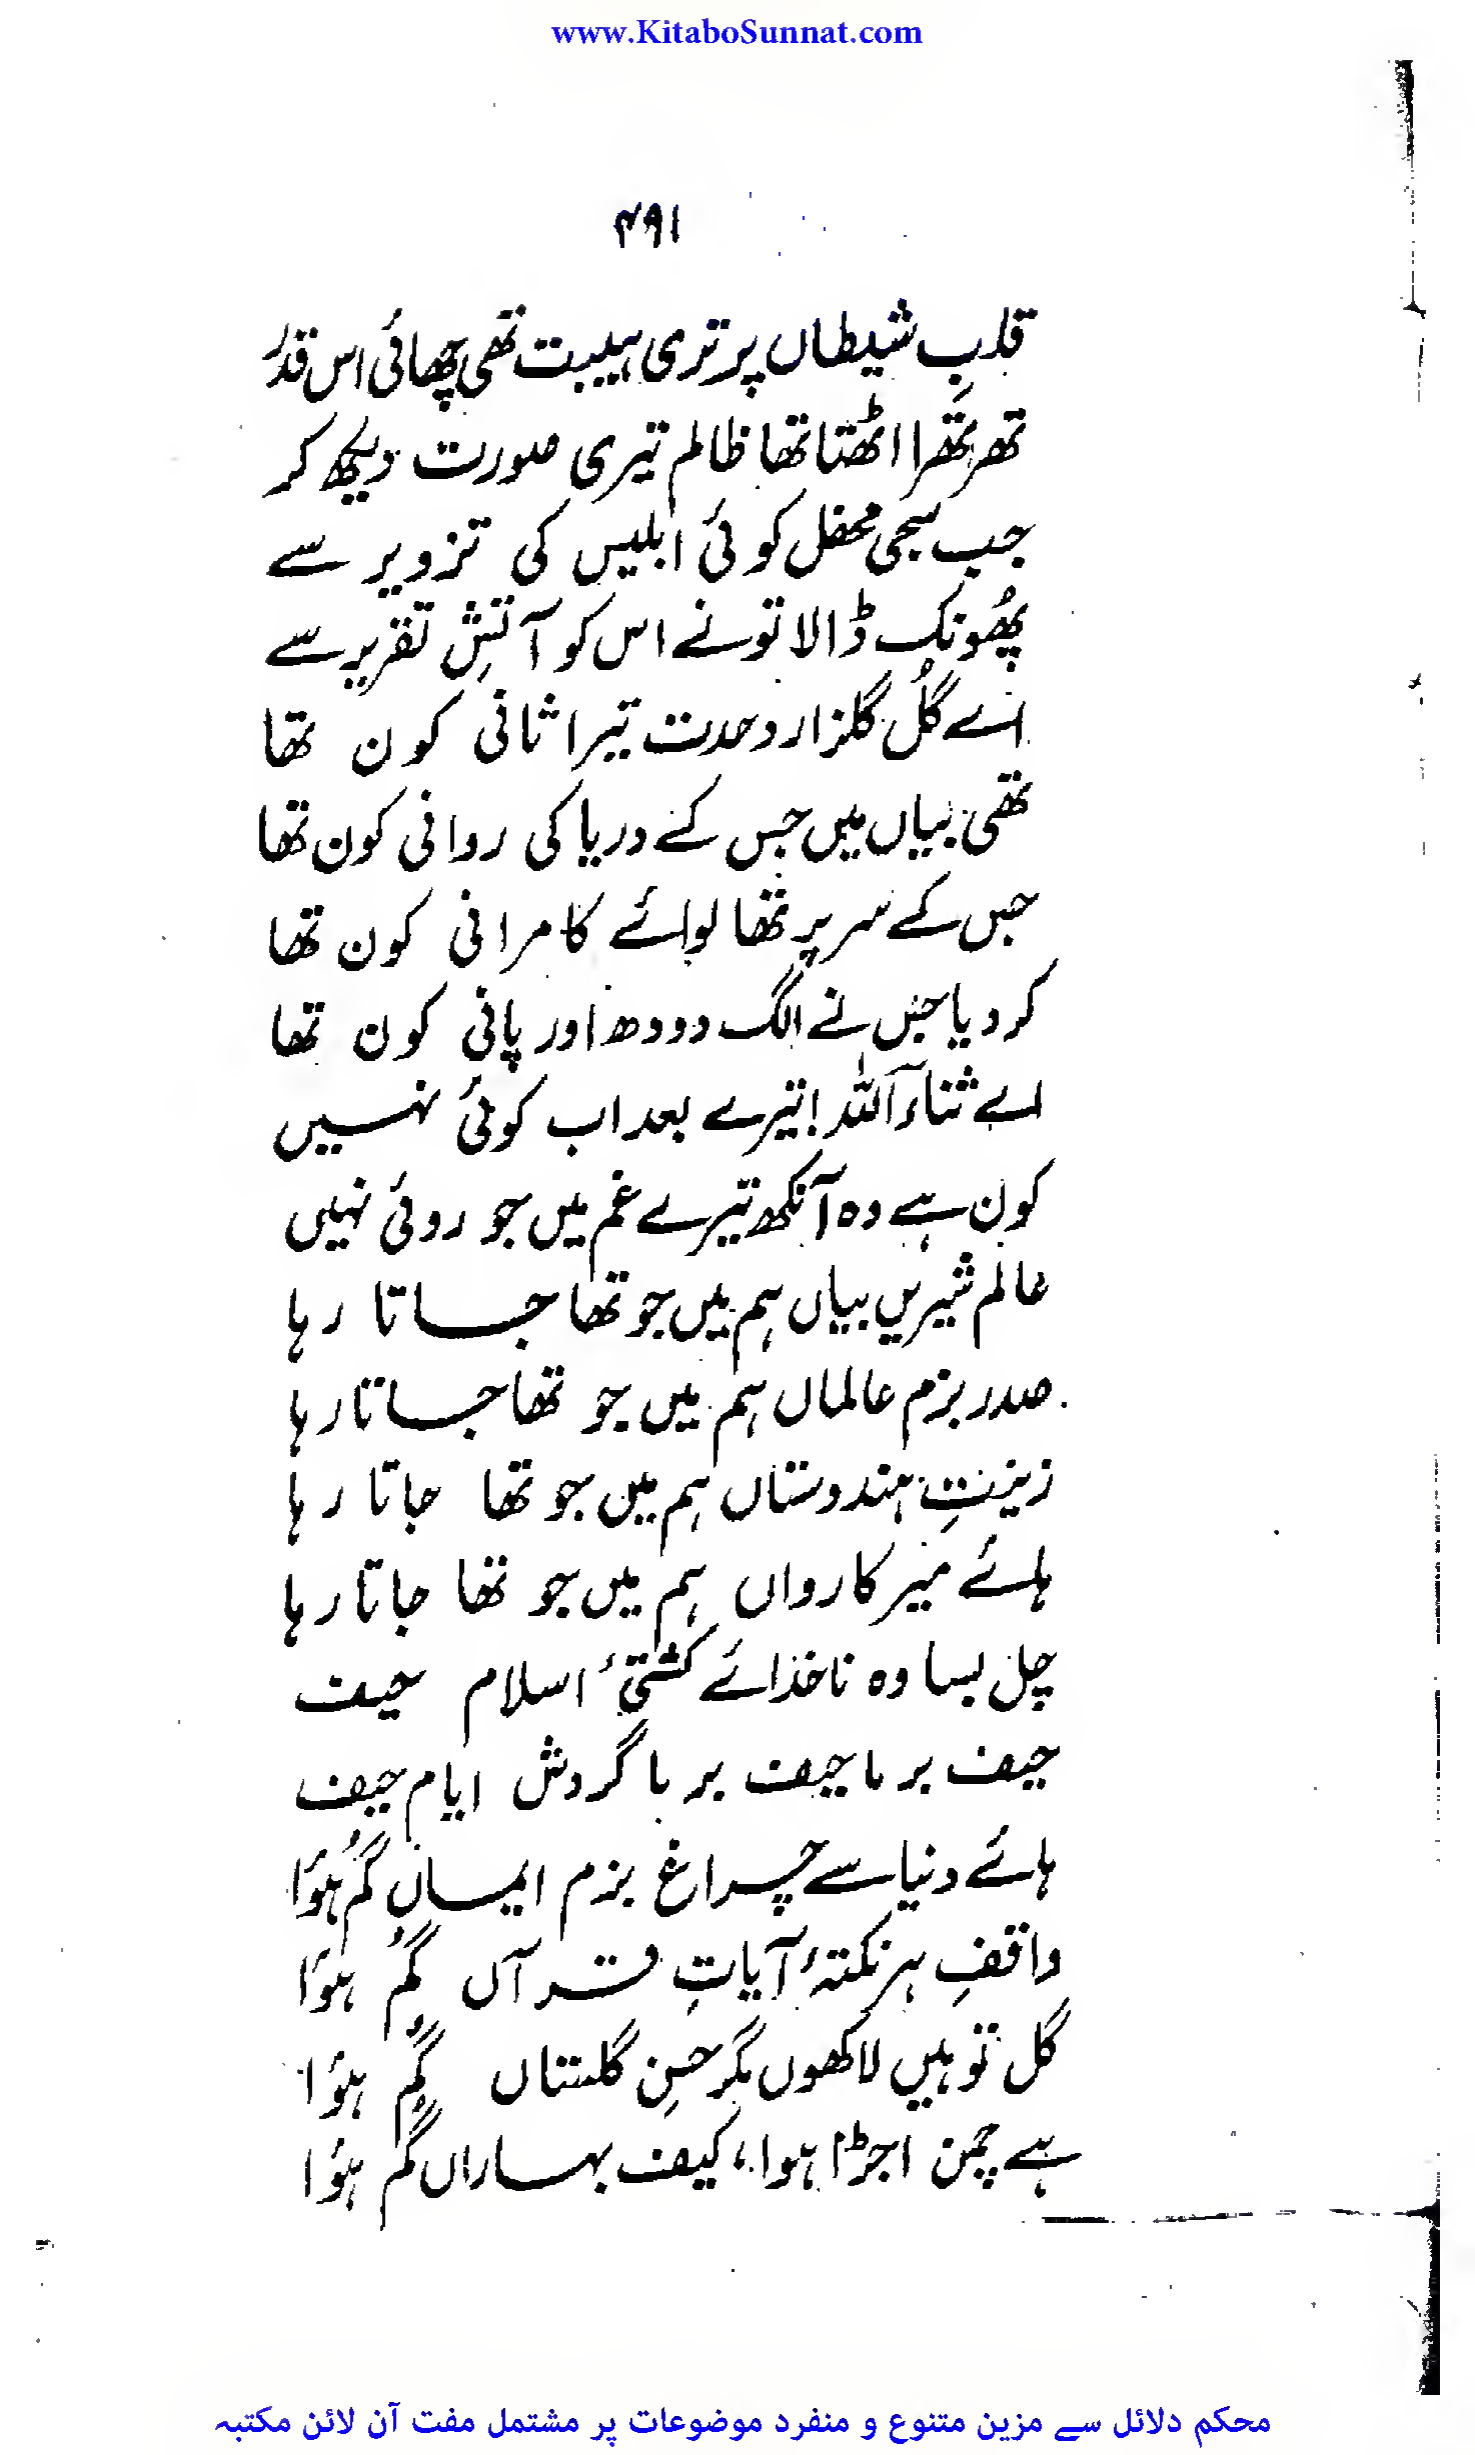 www.KitaboSunnat.com
۴۹۱
قلبِ شیطاں پر تری ہیبت تھی چھائی اس قدر
تھرتھرا اٹھتا تھا ظالم تیری صورت دیکھ کر
جب سجی محفل کوئی ابلیس کی تزویر سے
پھُونک ڈالا تو نے اس کو آتشِ تقریر سے
اے گُل گلزار وحدت تیرا ثانی کون تھا
تھی بیاں میں جس کے دریا کی روانی کون تھا
جس کے سر پر تھا لوائے کامرانی کون تھا
کر دیا جس نے الگ دودھ اور پانی کون تھا
اے ثناءاللہ! تیرے بعد اب کوئی نہیں
کون ہے وہ آنکھ تیرے غم میں جو روئی نہیں
عالم شیریں بیاں ہم میں جو تھا جاتا رہا
صدر بزم عالماں ہم میں جو تھا جاتا رہا
زینتِ ہندوستاں ہم میں جو تھا جاتا رہا
ہائے میر کارواں ہم میں جو تھا جاتا رہا
چل بسا وہ ناخدائے کشتئ اسلام حیف
حیف بر ما حیف بر با گردش ایام حیف
ہائے دنیا سے چراغ بزم ایماں گُم ہؤا
واقفِ ہر نکتۂ آیاتِ قرآں گُم ہؤا
گل تو ہیں لاکھوں مگر حسنِ گلستاں گُم ہؤا
ہے چمن اجڑا ہوا، کیف بہاراں گُم ہؤا
محکم دلائل سے مزین متنوع و منفرد موضوعات پر مشتمل مفت آن لائن مکتبہ